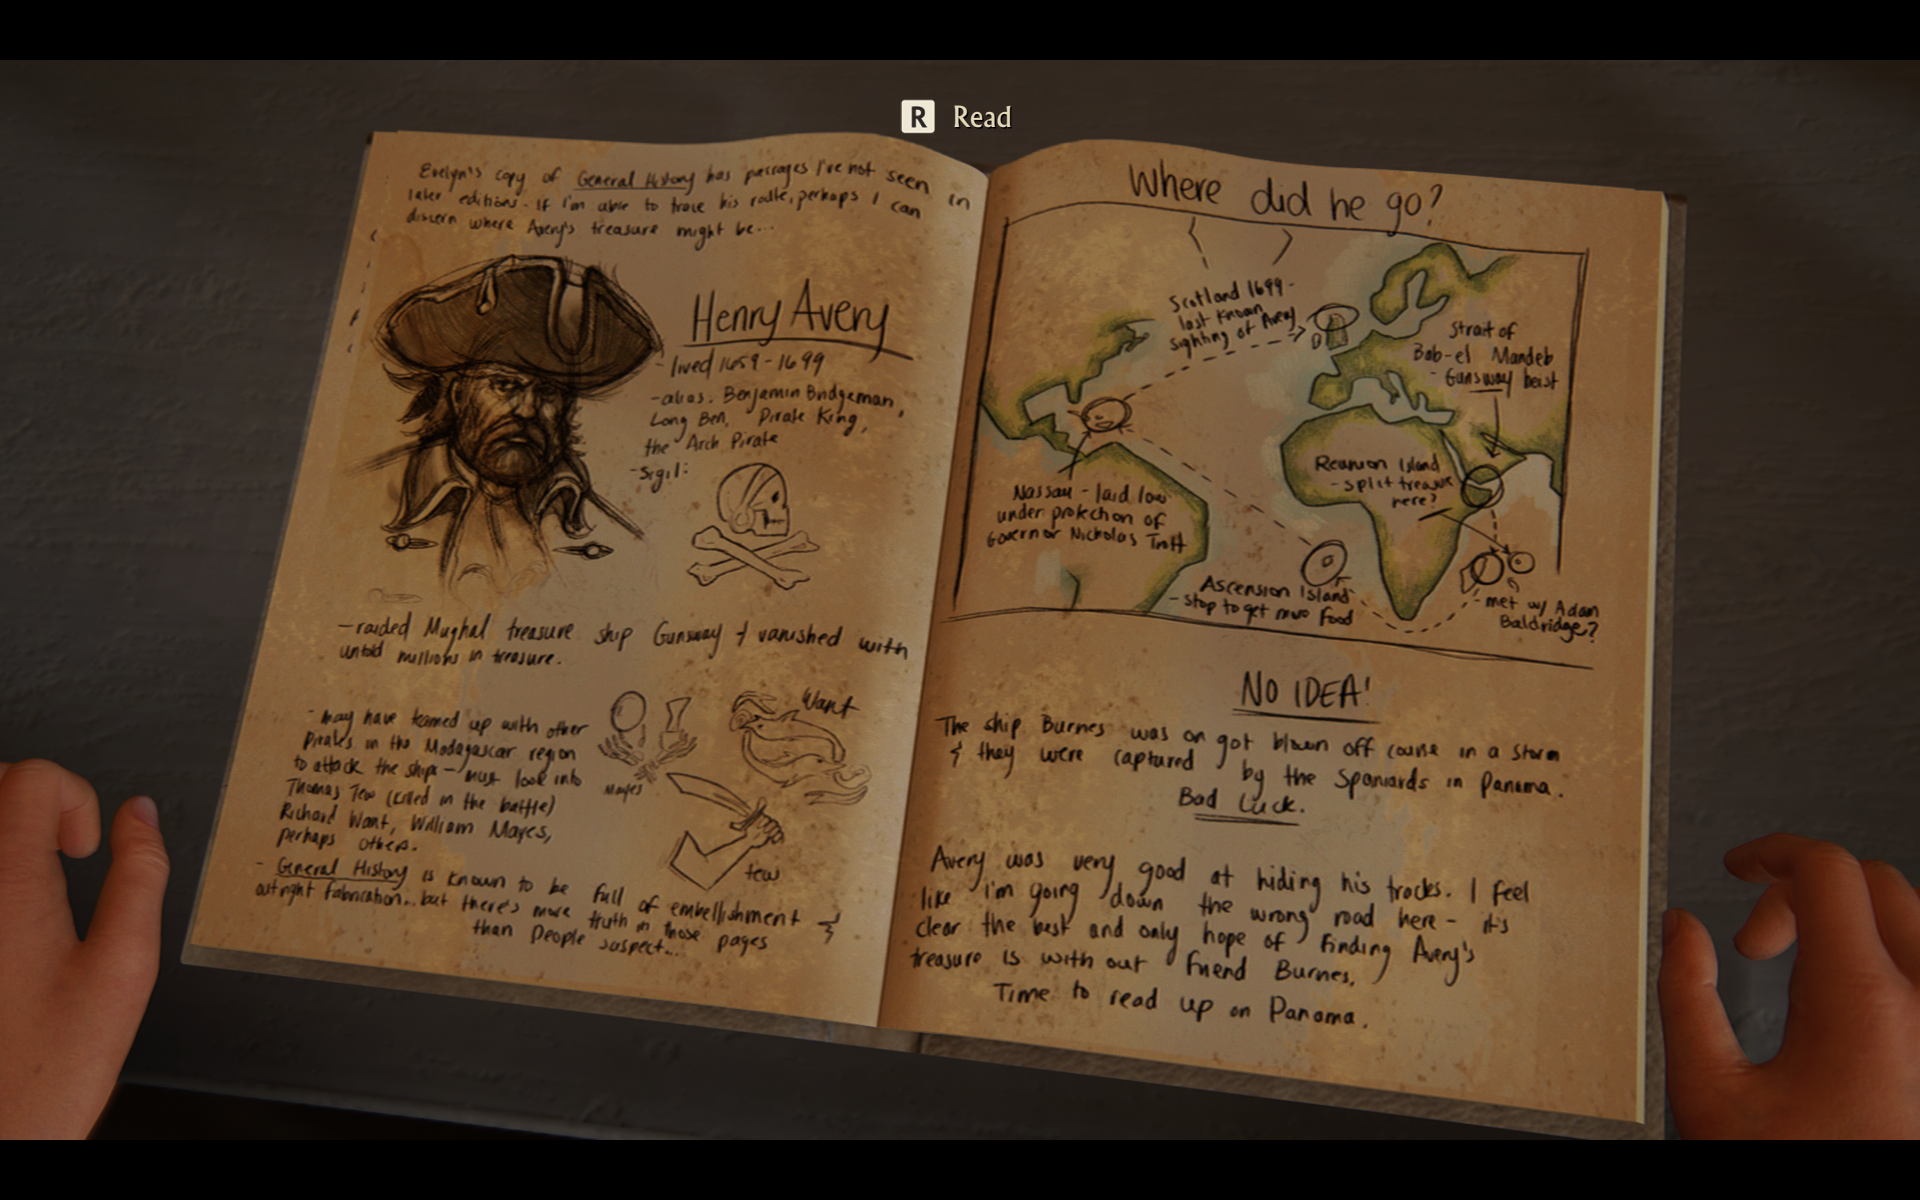 R Read
Evelyn's copy of General History has passages I've not seen in
later editions. If I'm able to trace his route, perhaps I can
discern where Avery's treasure might be...
Henry Avery
- lived 1659-1699
- alias. Benjamin Bridgeman,
Long Ben, Pirate King,
the Arch Pirate
- Sigil:
- raided Mughal treasure ship Gunsway & vanished with
untold millions in treasure.
- may have teamed up with other
pirates in the Madagascar region
to attack the ships - must look into
Thomas Tew (killed in the battle)
Richard Want, William Mayes,
perhaps others.
Mayes
Want
Tew
- General History is known to be full of embellishment &
outright fabrication.. but there's more truth in those pages
than people suspect...
Where did he go?
Scotland 1699-
last known
sighting of Avery
Strait of
Bab-el Mandeb
- Gunsway heist
Reunion Island
- split treasure
here?
Nassau - laid low
under protection of
Governor Nickolas Trott
Ascension Island
- stop to get more food
- met w/ Adam
Baldridge?
NO IDEA!
The ship Burnes was on got blown off course in a storm
& they were captured by the Spaniards in Panama.
Bad Luck.
Avery was very good at hiding his tracks. I feel
like i'm going down the wrong road here - it's
clear the best and only hope of finding Avery's
treasure is with our friend Burnes.
Time to read up on Panama.